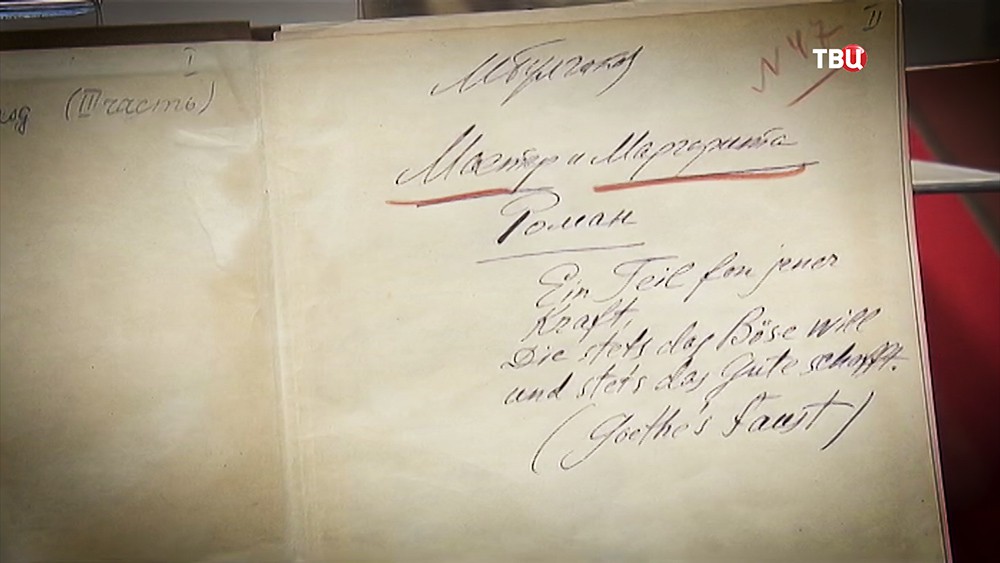 I
(III часть)
II
N 47
ТВЦ
МБулгаков
Мастер и Маргарита
Роман
Ein Teil fon jener
Kraft,
Die stets das Böse will
und stets das Gute schafft.
(Goethe's Faust)